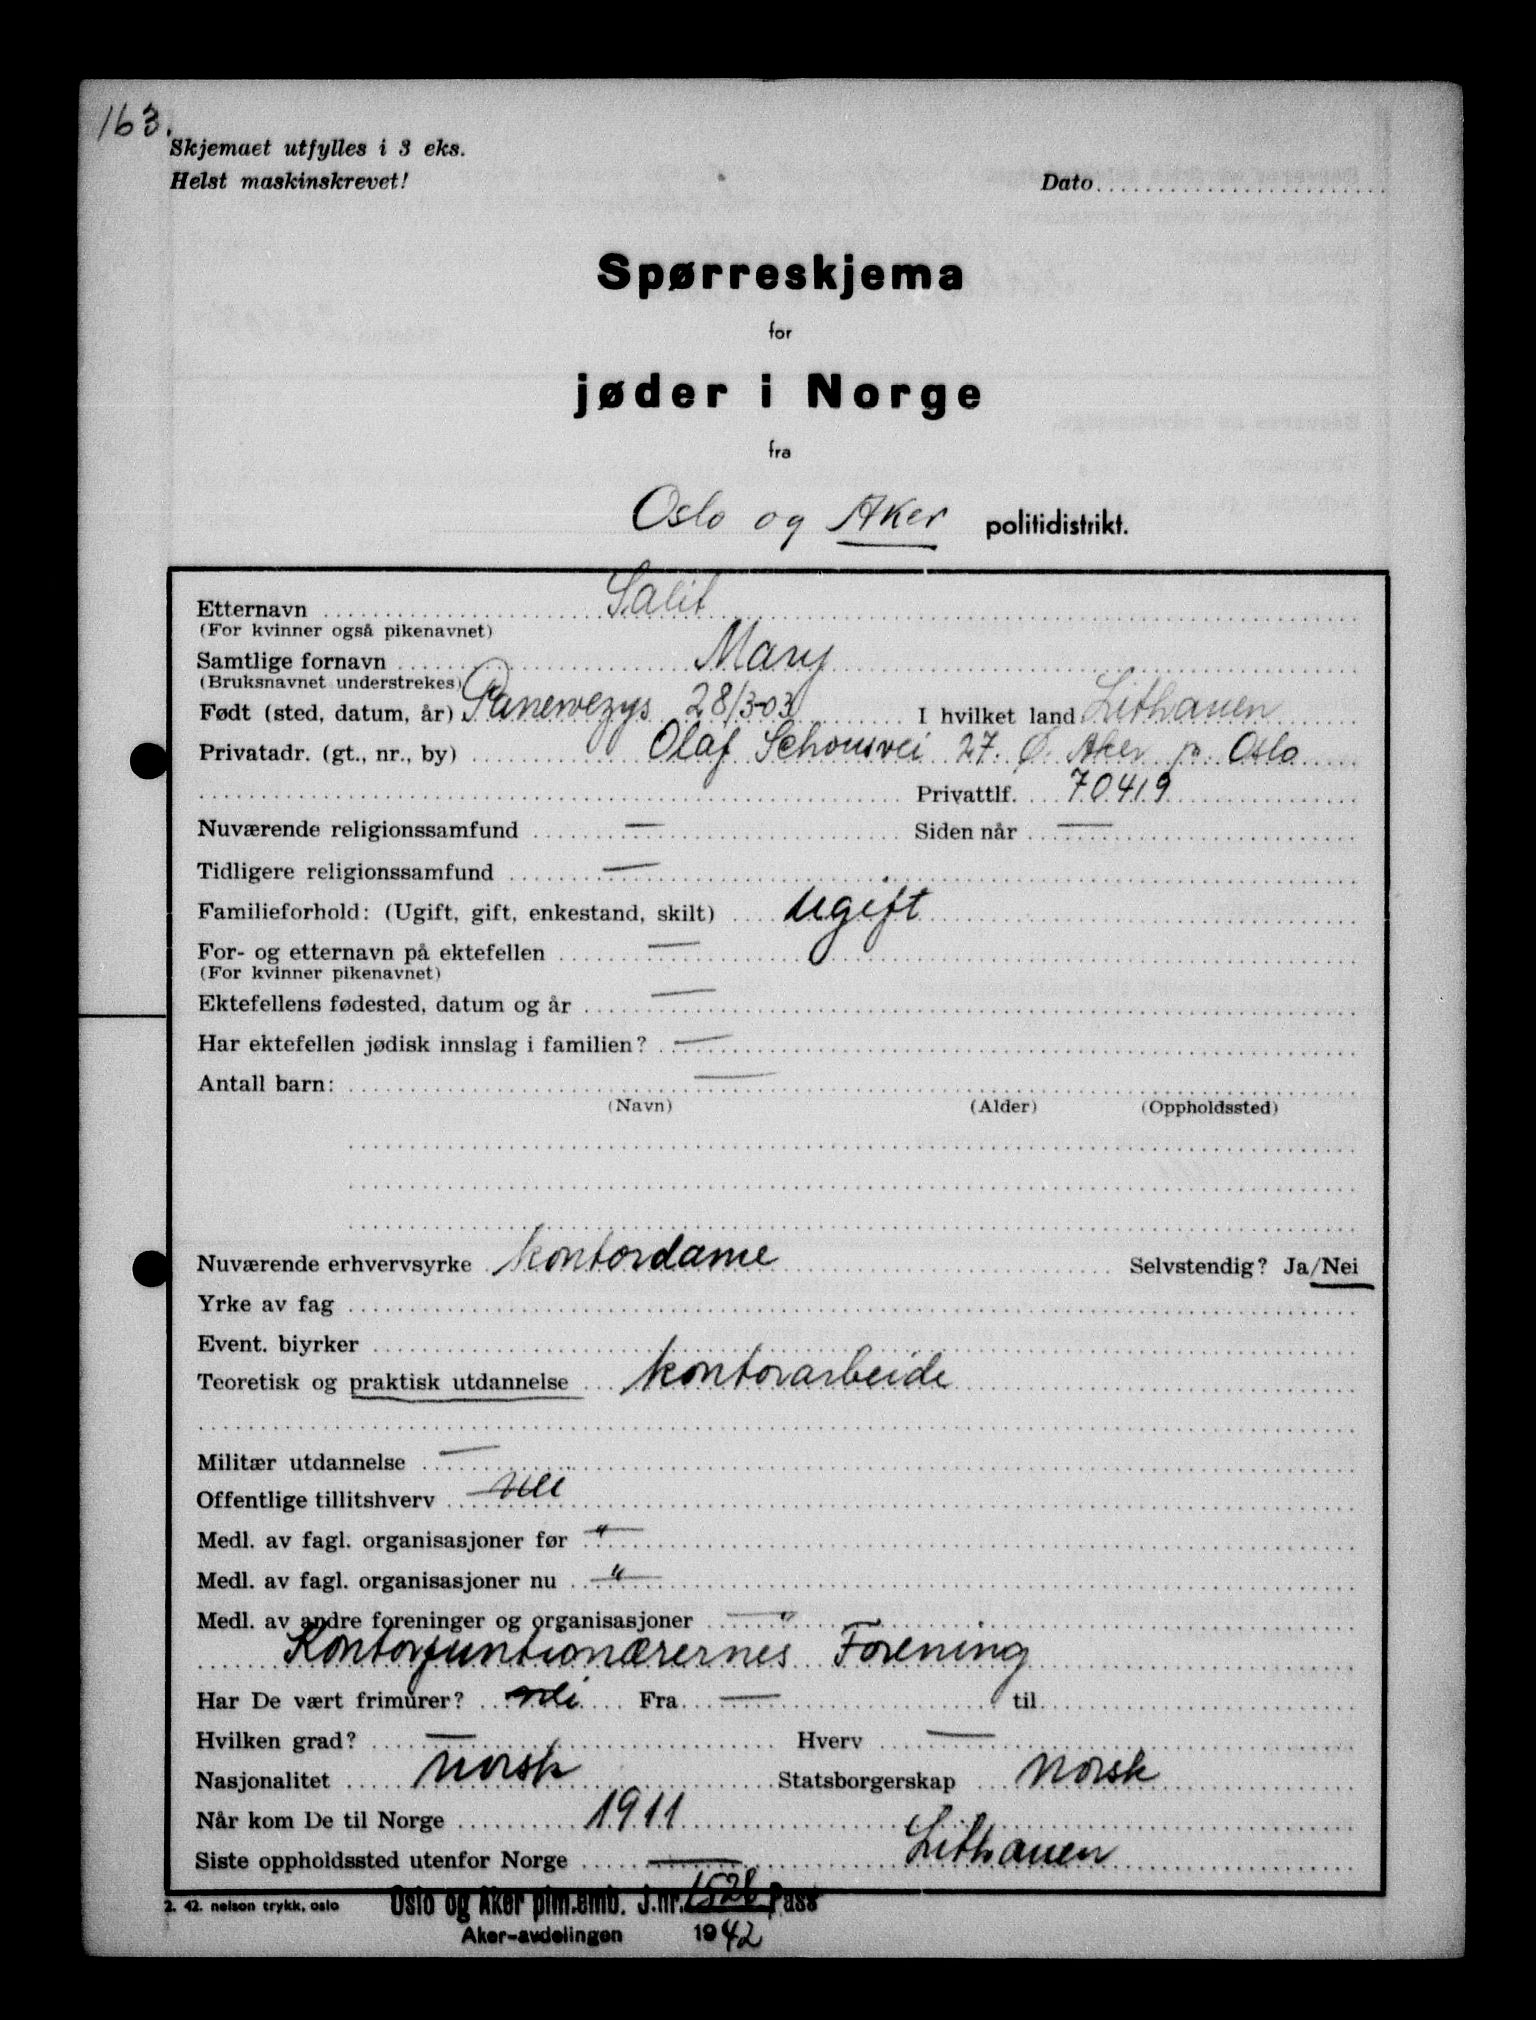 163.
Skjemaet utfylles i 3 eks.
Helst maskinskrevet!
Dato
Spørreskjema
for
jøder i Norge
fra
Oslo og Aker politidistrikt.
Etternavn Salit
(For kvinner også pikenavnet)
Samtlige fornavn Mary
(Bruksnavnet understrekes)
Født (sted, datum, år) Panevezys 28/3-03 I hvilket land Lithauen
Privatadr. (gt., nr., by) Olaf Schousvei 27. Ø. Aker pr. Oslo
Privattlf. 70419
Nuværende religionssamfund — Siden når —
Tidligere religionssamfund —
Familieforhold: (Ugift, gift, enkestand, skilt) Ugift
For- og etternavn på ektefellen —
(For kvinner pikenavnet)
Ektefellens fødested, datum og år —
Har ektefellen jødisk innslag i familien? —
Antall barn: —
(Navn) (Alder) (Oppholdssted)
Nuværende erhvervsyrke Kontordame Selvstendig? Ja/Nei
Yrke av fag
Event. biyrker
Teoretisk og praktisk utdannelse Kontorarbeide
Militær utdannelse —
Offentlige tillitshverv nei
Medl. av fagl. organisasjoner før "
Medl. av fagl. organisasjoner nu "
Medl. av andre foreninger og organisasjoner "
Kontorfuntionærernes Forening
Har De vært frimurer? nei Fra — til
Hvilken grad? — Hverv —
Nasjonalitet norsk Statsborgerskap norsk
Når kom De til Norge 1911
Siste oppholdssted utenfor Norge — Lithauen
2. 42. nelson trykk, oslo
Oslo og Aker plm.emb. J.nr. 1528 Pass
Aker-avdelingen 1942